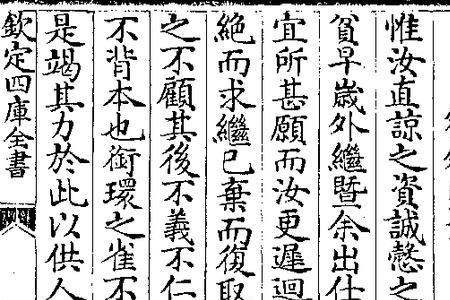 惟汝直諒之資誠慤之
貧早歲外繼暨余出仕
宜所甚願而汝更遲迴
絶而求繼已棄而復取
之不顧其後不義不仁
不背本也銜環之雀不
是竭其力於此以供人
欽定四庫全書